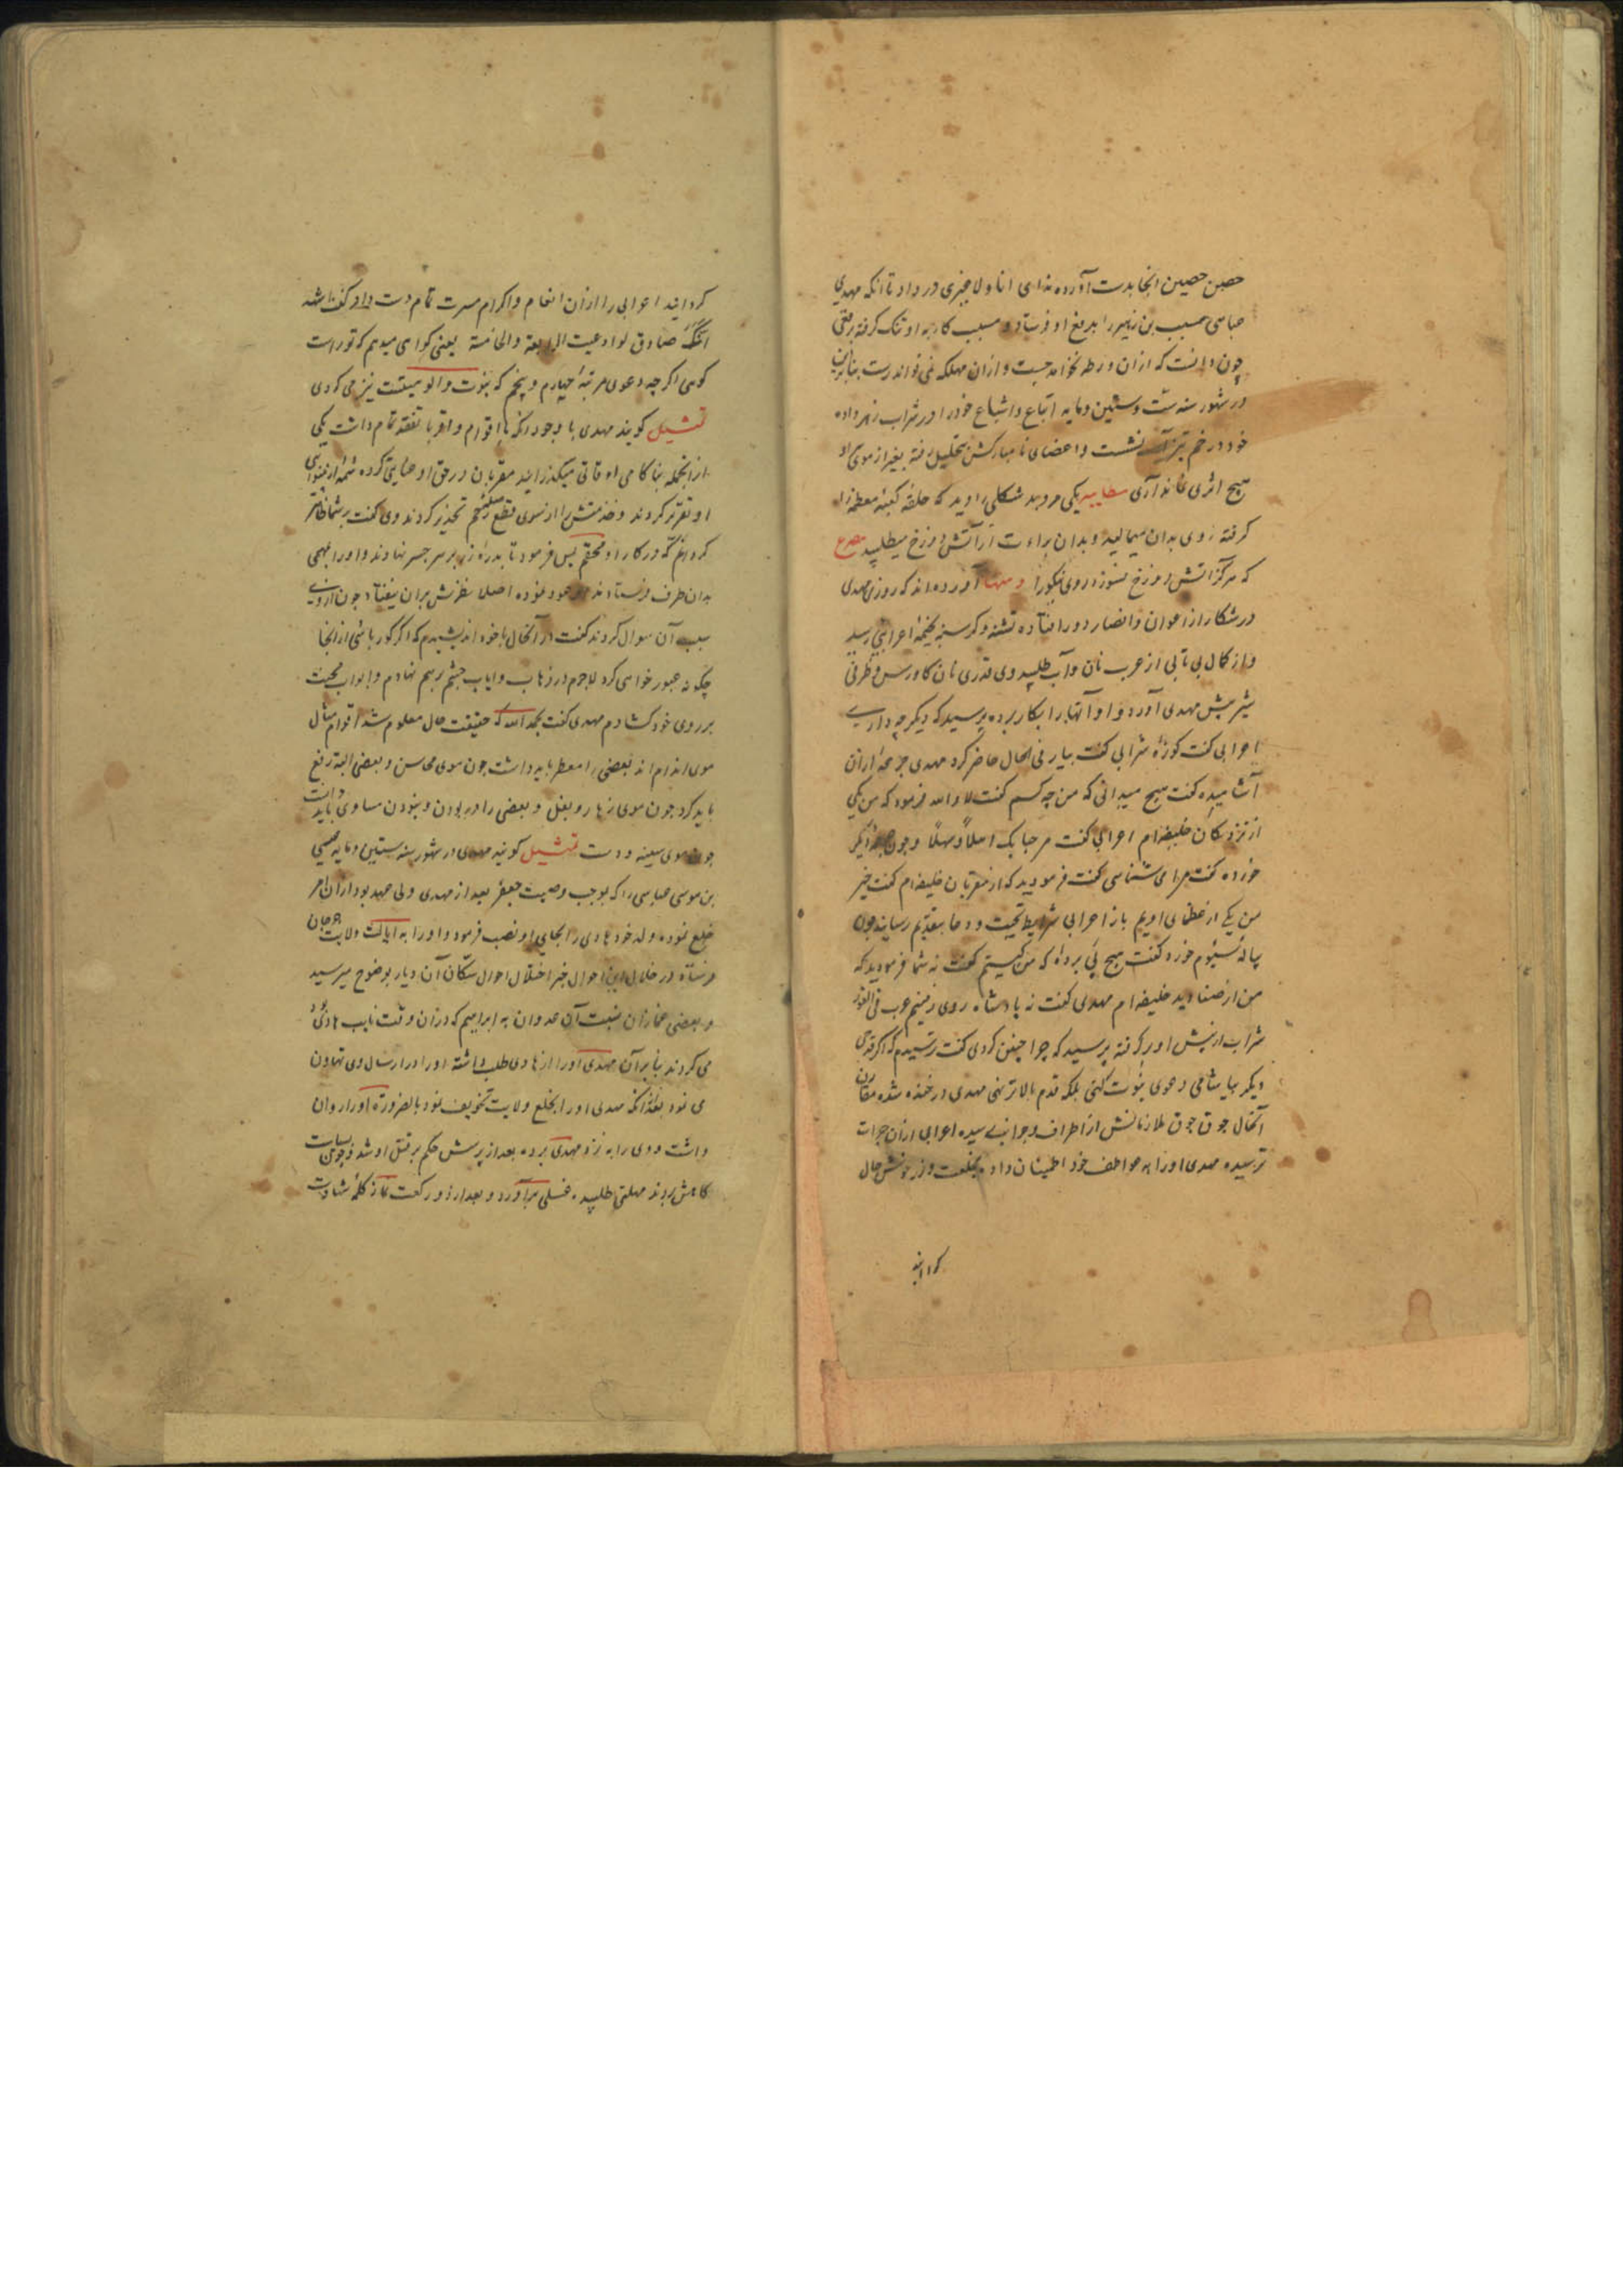 حصن حصین انجا بدست آورده ندای انا و لا غیری در داد تا انکه مهدی
عباسی مسیب بن زهیر را بدفع او فرستاد و مسیب کار به او تنک کرفته
چون دانست که ازان ورطه نخواهد جست و ازان مهلکه نمی تواند رست بنابرین
در شهور سنه ست و ستین و مایه اتباع و اشیاع خود را در شراب زهر داده
خود در خم تیزآب نشست و اعضای نامبارکش بتحلیل رفته بغیر از موی او
هیچ اثری نماند آری مطایبه یکی مرد بد شکلی را دید که حلقه کعبه معظمه را
کرفته روی بدان میمالید و بدان براءت از آتش دوزخ میطلبید مصرع
که هرکز آتش دوزخ نسوزد روی نیکو را و منها آورده اند که روزی مهدی
در شکار از اعوان و انصار دور افتاده تشنه و کرسنه بخیمه اعرابی رسید
و از کمال بی تابی از عرب نان و آب طلبید وی قدری نان کاورس و ظرفی
شیر پیش مهدی آورد و او آنها را بکار برده پرسید که دیکر چه داری
اعرابی کفت کوزه شرابی کفت بیار فی الحال حاضر کرد مهدی جرعه ازان
آشامیده کفت هیچ میدانی که من چه کسم کفت لا والله فرمود که من یکی
از نزدیکان خلیفه ام اعرابی کفت مرحبا بک اهلاً و سهلاً و چون جرعه دیکر
خورده کفت مرا می شناسی کفت فرمودید که از مقربان خلیفه ام کفت خیر
من یکی از عظمای اویم باز اعرابی شرایط تحیت و دعا بتقدیم رسانید چون
پیاله سیوم خورد کفت هیچ پی برده که من کیستم کفت نه شما فرمودید که
من از صنادید خلیفه ام مهدی کفت نه پادشاه روی زمینم عرب فی الفور
شراب از پیش او برکرفته پرسید که چرا چنین کردی کفت ترسیدم که اکر قدحی
دیکر بیاشامی دعوی نبوت کنی بلکه قدم بالاتر نهی مهدی در خنده شده مقارن
آنحال جوق جوق ملازمانش از اطراف و جوانب رسیده اعرابی ازان جرات
ترسیده مهدی او را به عواطف خود اطمینان داده بخلعت و زر خوش حال
کردانید
کردانید اعرابی را ازان انعام و اکرام مسرت تمام دست داد کفت اشهد
انّک صادق لو ادعیت الرابعة والخامسة یعنی کواهی میدهم که تو راست
کوئی اکرچه دعوی مرتبه چهارم و پنجم که نبوت و الوهیتست نیز می کردی
تمثیل کویند مهدی با وجود انکه با اقوام و اقربا تفقد تمام داشت یکی
از انجمله بناکامی اوقاتی میکذرانید مقربان در حق او عنایتی کرده شمه از بینوایی
او تقریر کردند و خدمتش را از سوی قطع رحم تحذیر کردند وی کفت بر شما ظاهر
کردانم که در کار او محقم پس فرمود تا بدره زر بر سر جسر نهادند و او را بمهمی
بدان طرف فرستادند او عود نموده اصلا نظرش بران نیفتاد چون از وی
سبب آن سوال کردند کفت در آنحال باخود اندیشیدم که اکر کور باشی از انجا
چکونه عبور خواهی کرد لاجرم در ذهاب و ایاب چشم برهم نهادم و ابواب محنت
بر روی خود کشادم مهدی کفت بحمد الله که حقیقت حال معلوم شد اقوام مثال
موی اندام اند بعضی را معطر باید داشت چون موی محاسن و بعضی البته رفع
باید کرد چون موی زهار و بغل و بعضی را در بودن و نبودن مساوی باید دانست
چون موی سینه و دست تمثیل کویند مهدی در شهور سنه ستین و مایه عیسی
بن موسی عباسی را که بموجب وصیت جعفر بعد از مهدی ولی عهد بود ازان امر
خلع نموده ولد خود هادی را بجای او نصب فرمود و او را به ایالت ولایت جرجان
فرستاد در خلال این احوال خبر اختلال احوال سکان آن دیار بوضوح میرسید
و بعضی غمازان نسبت آن عدوان به ابراهیم که دران وقت نایب هادی بود
می کردند بنابرآن مهدی او را از هادی طلب داشته او در ارسال وی تهاون
می نمود بعد از انکه مهدی او را بخلع ولایت تخویف نمود بالضرورة او را روان
داشت و وی را به نزد مهدی برده بعد از پرسش حکم بر قتل او شد و چون بسیاست
کاهش بردند مهلتی طلبیده غسلی برآورد و بعد از دو رکعت نماز کلمه شهادت